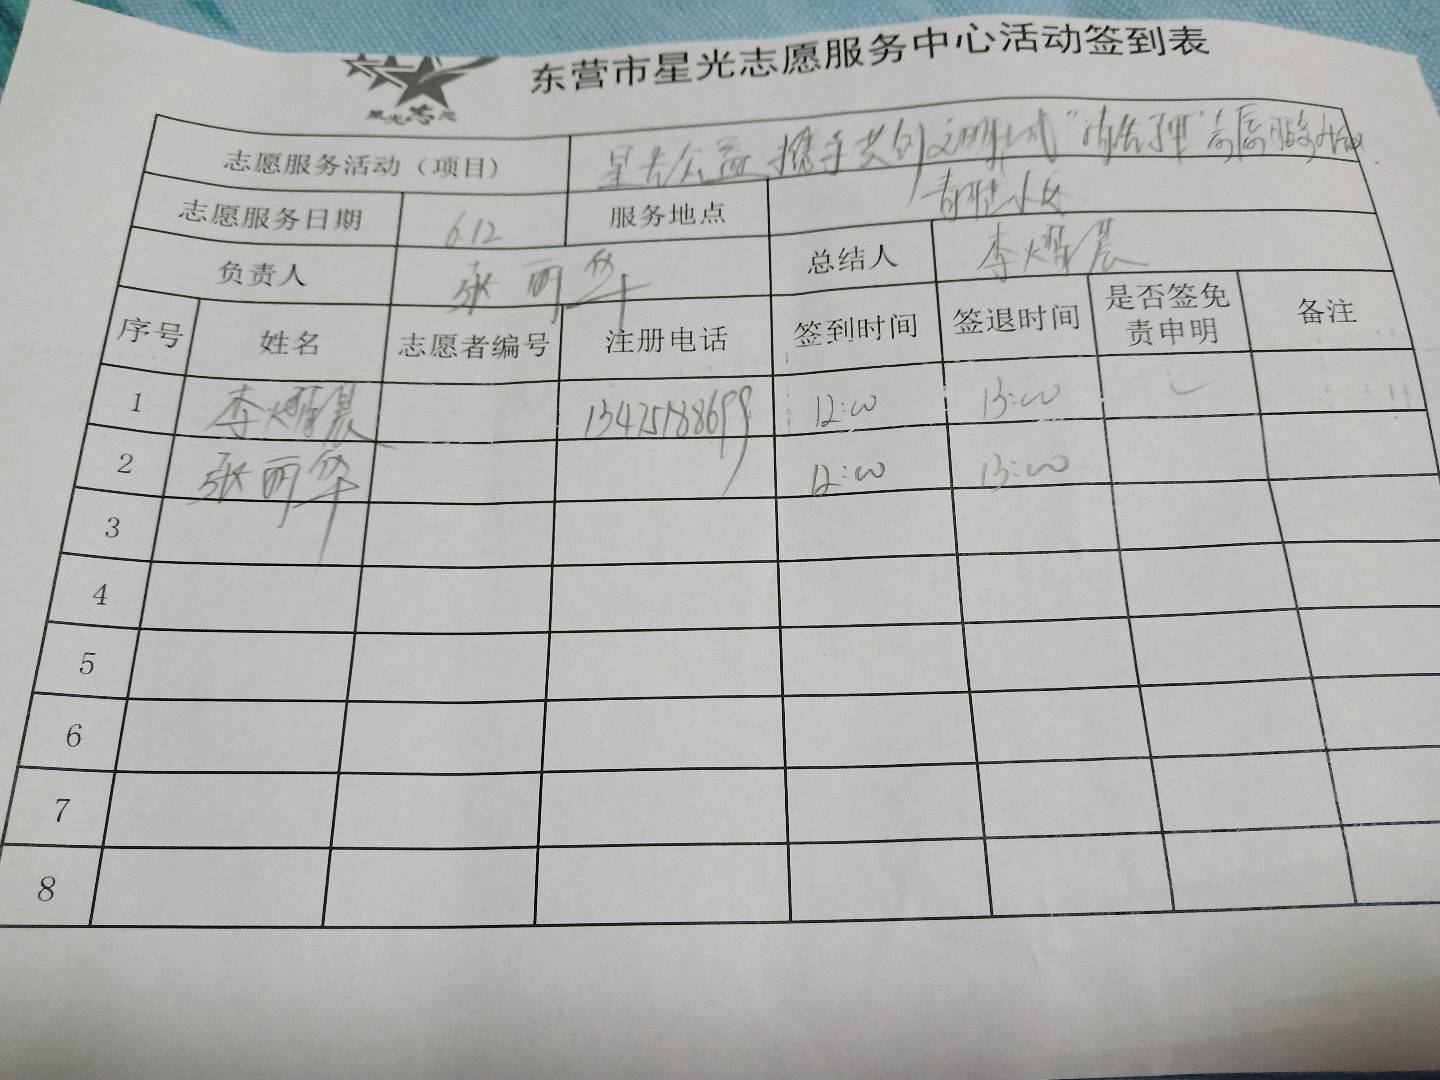 东营市星光志愿服务中心活动签到表
星光志愿
志愿服务活动（项目） 星光公益 携手共创文明城
志愿服务日期 6.12 服务地点
负责人 张丽华 总结人 李耀晨
序号 姓名 志愿者编号 注册电话 签到时间 签退时间 是否签免责申明 备注
1 李耀晨 13475188699 12:00 13:00 ✓
2 张丽华 12:00 13:00
3
4
5
6
7
8